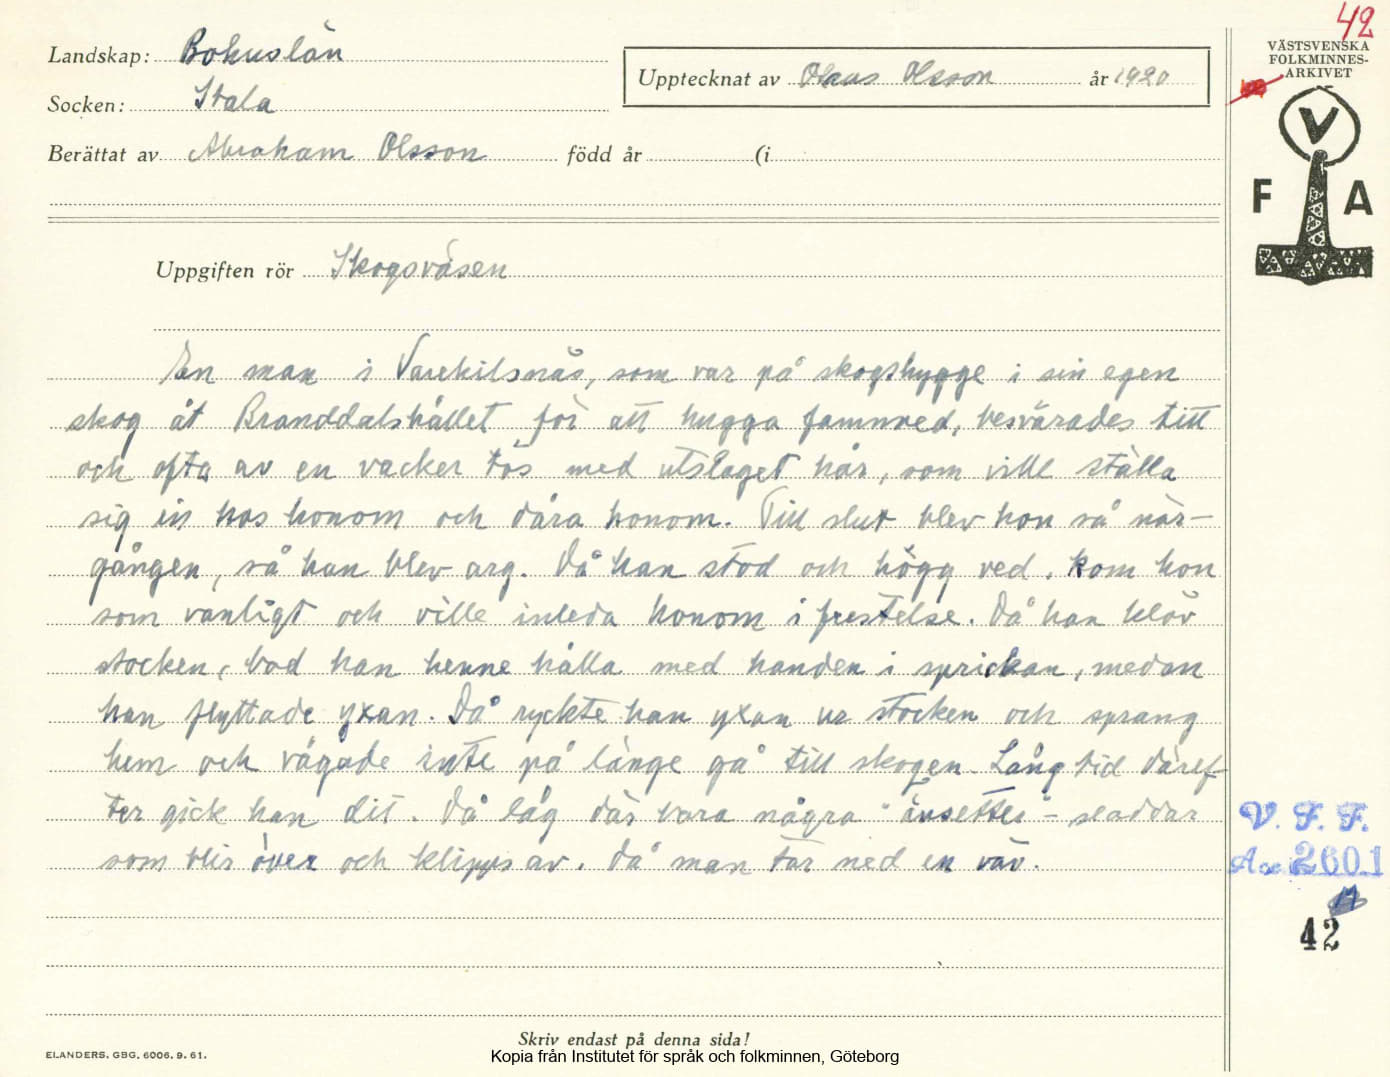 42
VÄSTSVENSKA
FOLKMINNES-
ARKIVET
V
F A
Landskap: Bohuslän
Socken: Stala
Upptecknat av Olsson år 1920
Berättat av Abraham Olsson född år (i
Uppgiften rör Skogsväsen
En man i Varekilsnäs, som var på skogshygge i sin egen
skog åt Branddalshållet för att hugga famnved, besvärades titt
och ofta av en vacker tös med utslaget hår, som ville ställa
sig in hos honom och dåra honom. Till slut blev hon så när-
gången, så han blev arg. Då han stod och högg ved, kom hon
som vanligt och ville inleda honom i frestelse. Då han klöv
stocken, bad han henne hålla med handen i sprickan, medan
han flyttade yxan. Då ryckte han yxan ur stocken och sprang
hem och vågade inte på länge gå till skogen. Lång tid däref-
ter gick han dit. Då låg där bara några "änsettes"- sladdar
som blir över och klipps av, då man tar ned en väv.
V. F. F.
Acc 2601
42
Skriv endast på denna sida!
ELANDERS, GBG. 6006. 9. 61.
Kopia från Institutet för språk och folkminnen, Göteborg